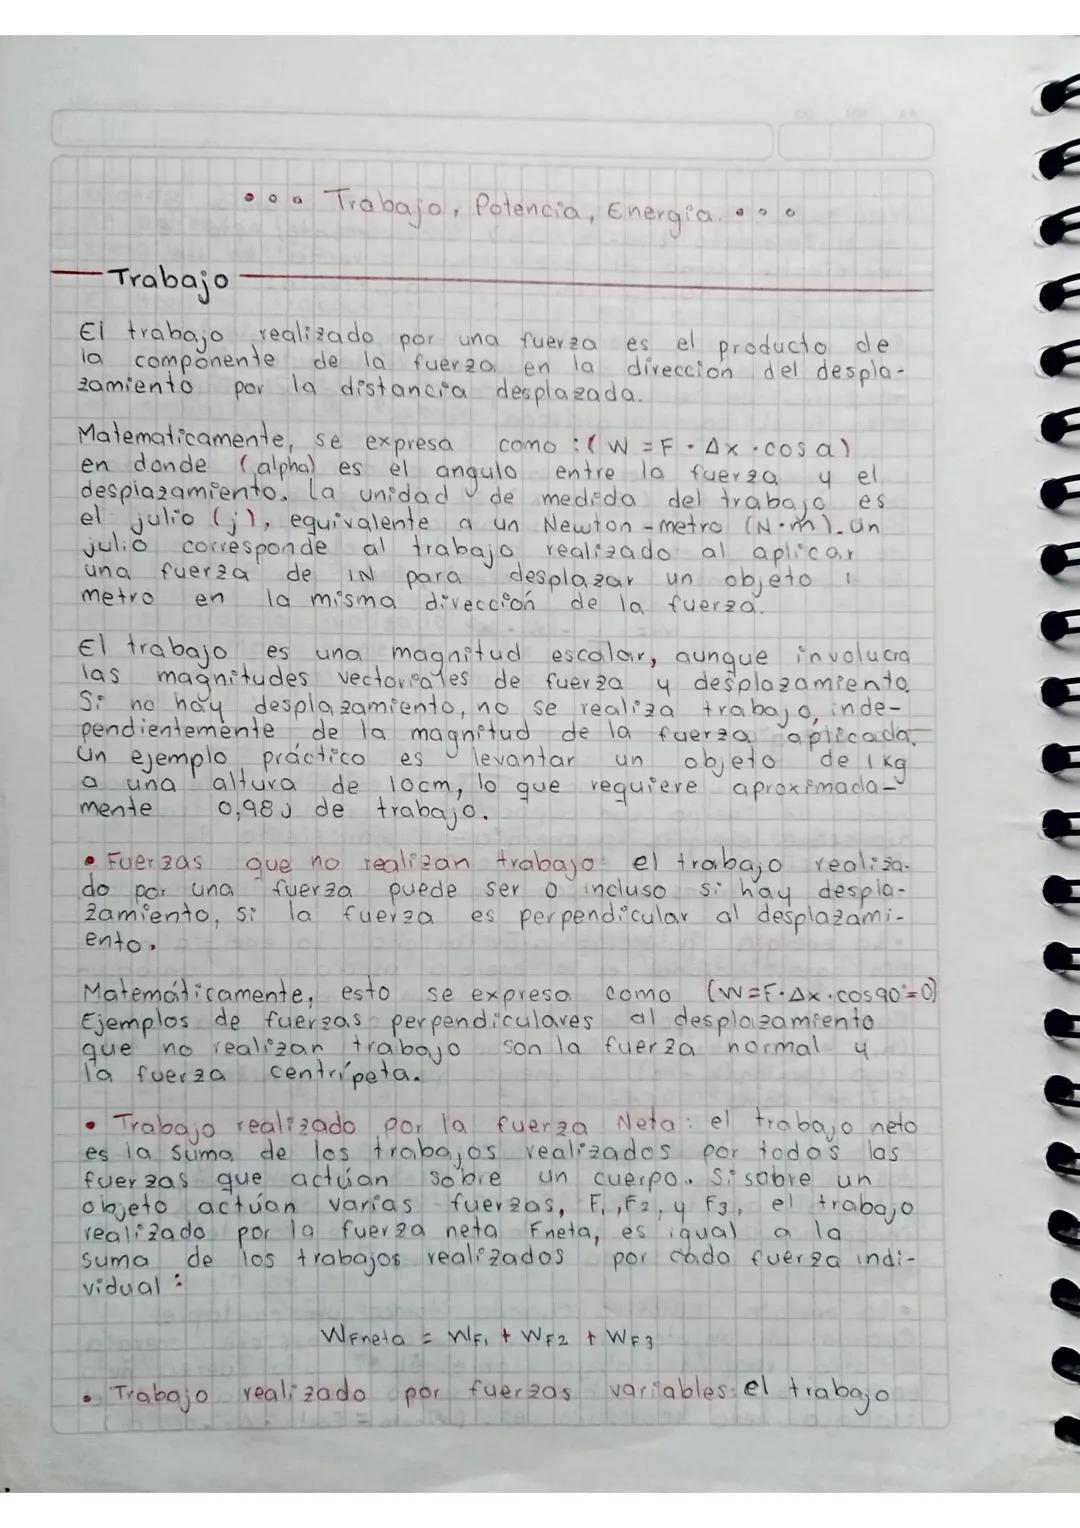 Trabajo, Potencia, Energía.
Trabajo
El trabajo realizado por una fuerza es el producto de
la componente de la fuerza en la direccion del despla-
zamiento por la distancia desplazada.
Matematicamente, se expresa como : ( W = F · Δx · cos a )
en donde (alpha) es el angulo entre la fuerza y el
desplazamiento. La unidad de medida del trabajo es
el julio (j), equivalente a un Newton-metro (N·m). Un
julio corresponde al trabajo realizado al aplicar
una fuerza de 1N para desplazar un objeto 1
metro en la misma dirección de la fuerza.
El trabajo es una magnitud escalar, aunque involucra
las magnitudes vectoriales de fuerza y desplazamiento.
Si no hay desplazamiento, no se realiza trabajo, inde-
pendientemente de la magnitud de la fuerza aplicada.
Un ejemplo práctico es levantar un objeto de 1 kg
a una altura de 10cm, lo que requiere aproximada-
mente 0,98J de trabajo.
• Fuerzas que no realizan trabajo: el trabajo realiza-
do por una fuerza puede ser 0 incluso si hay despla-
zamiento, si la fuerza es perpendicular al desplazami-
ento.
Matemáticamente, esto se expresa como (W=F·Δx·cos90°=0)
Ejemplos de fuerzas perpendiculares al desplazamiento
que no realizan trabajo son la fuerza normal y
la fuerza centrípeta.
• Trabajo realizado por la fuerza Neta: el trabajo neto
es la suma de los trabajos realizados por todas las
fuerzas que actúan sobre un cuerpo. Si sobre un
objeto actúan varias fuerzas, F1, F2, y F3, el trabajo
realizado por la fuerza neta Fneta, es igual a la
suma de los trabajos realizados por cada fuerza indi-
vidual:
WFneta = WF1 + WF2 + WF3
• Trabajo realizado por fuerzas variables: el trabajo